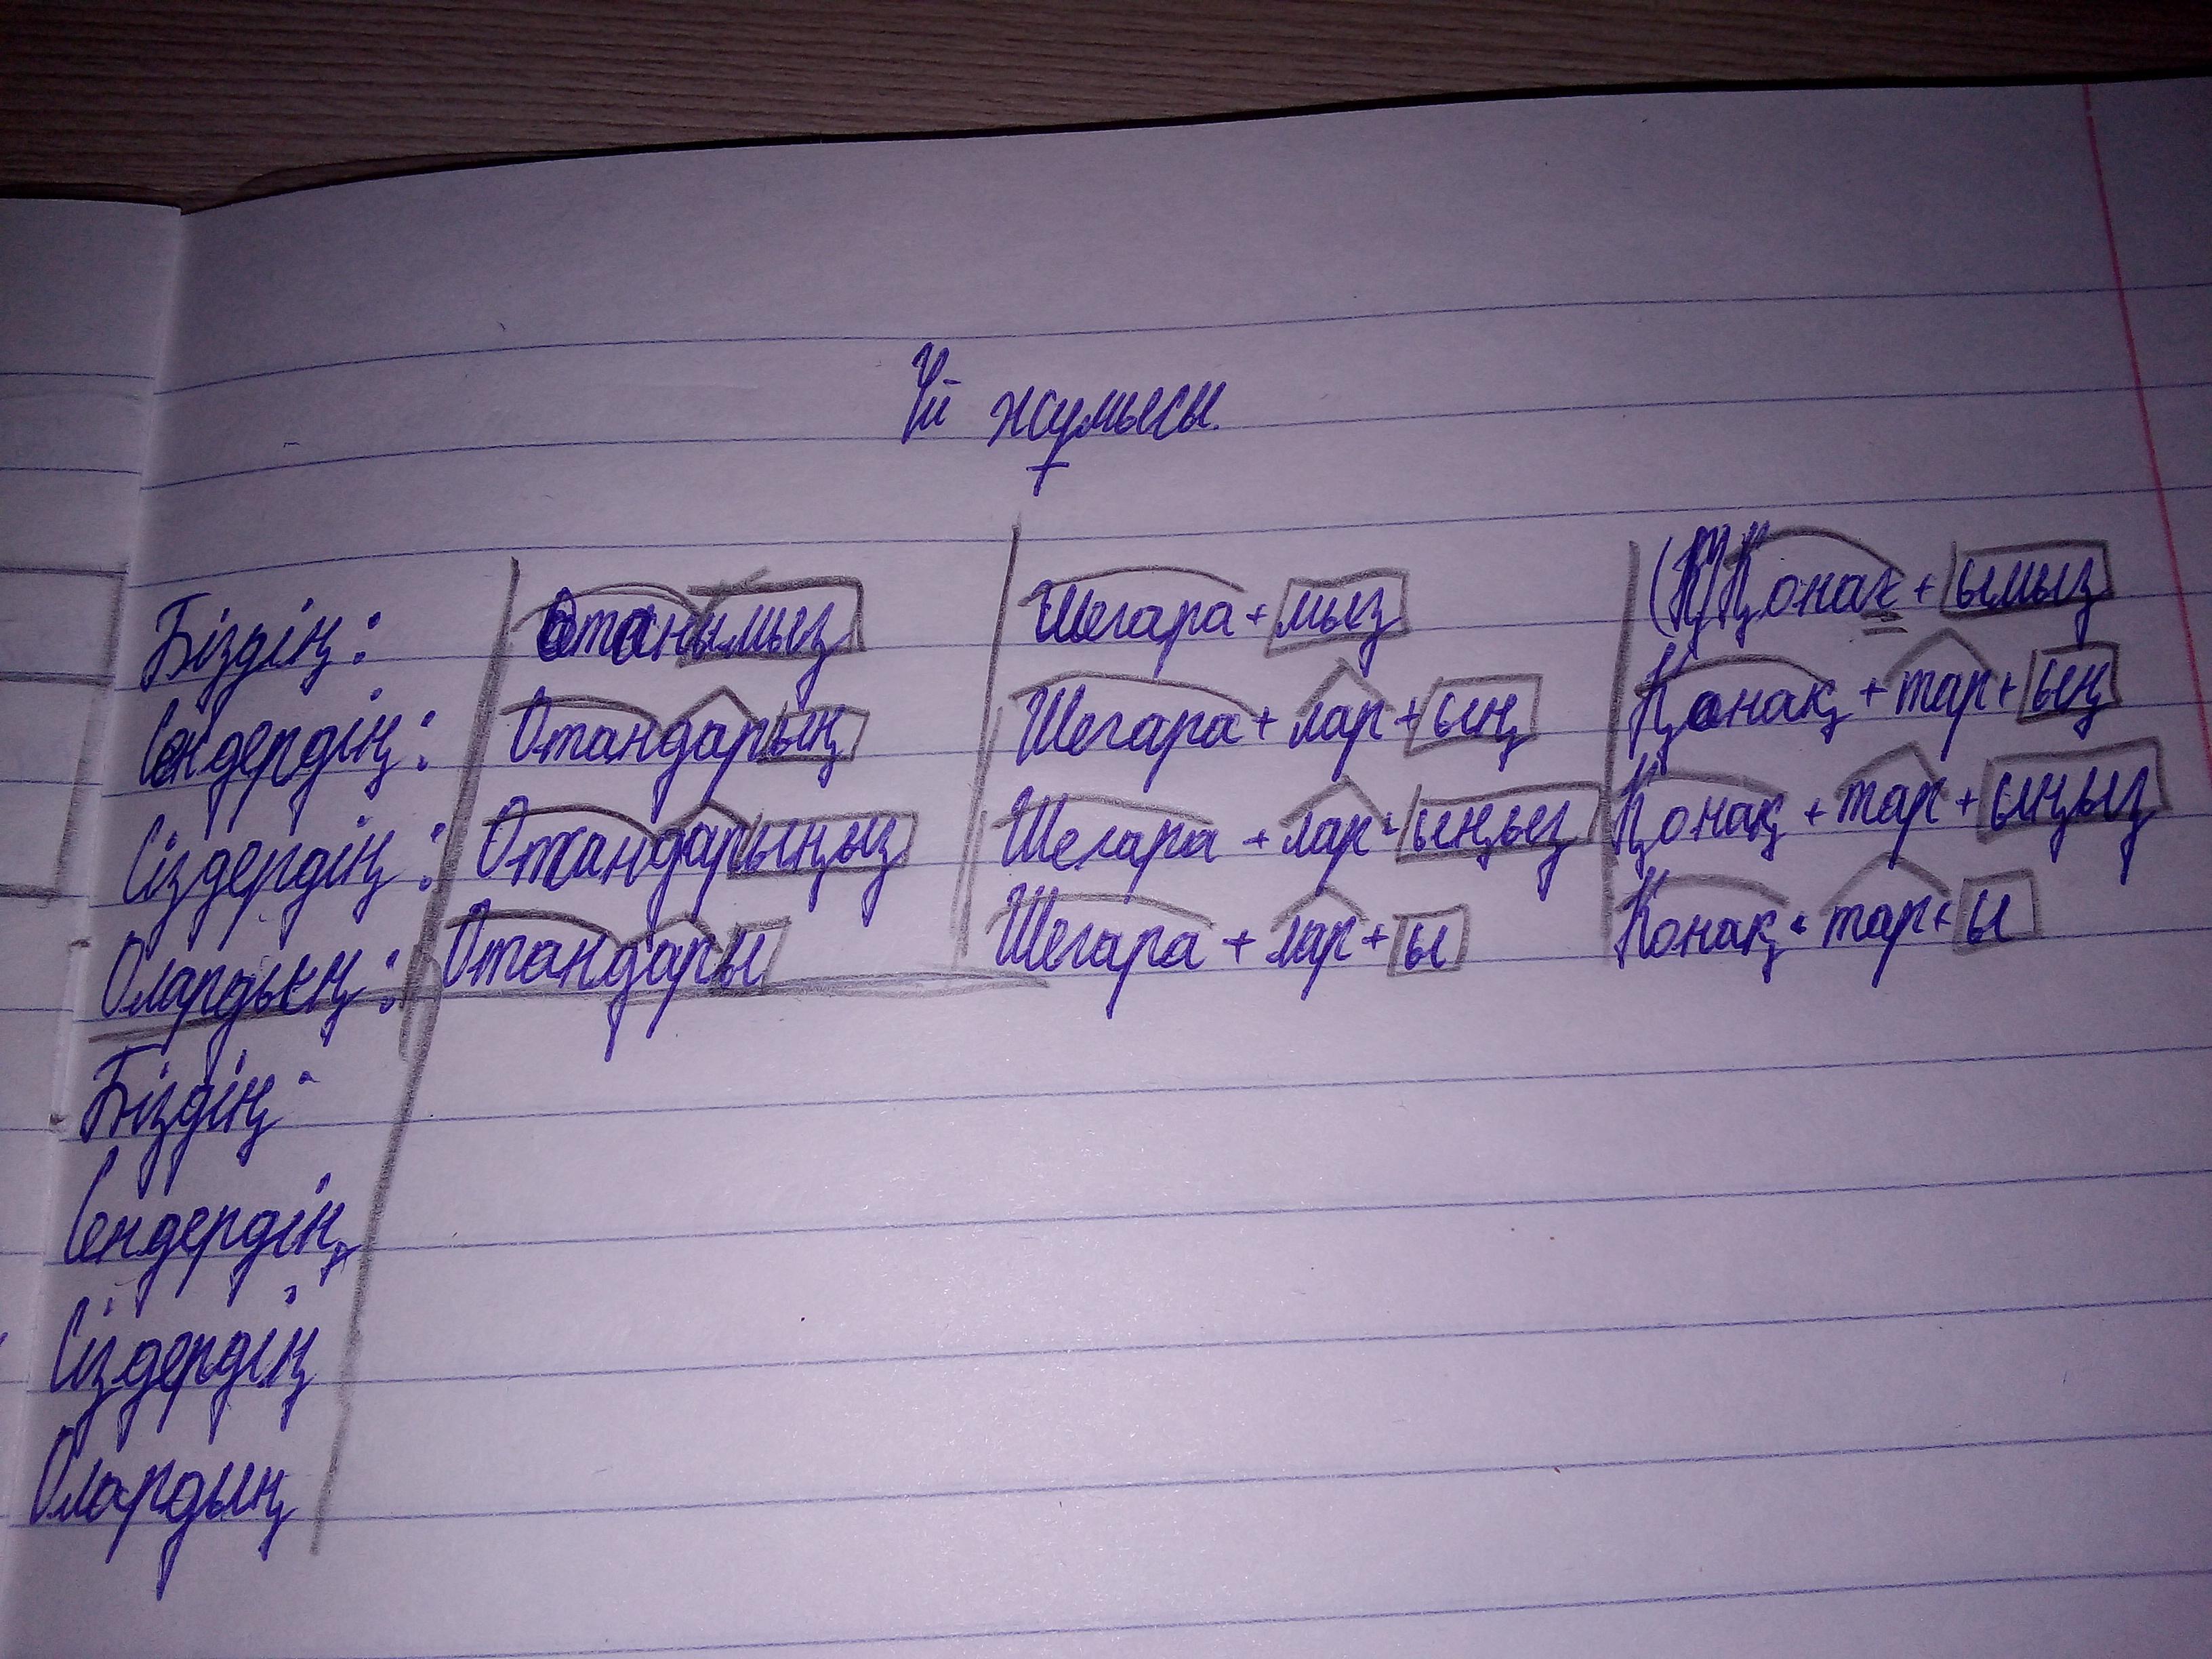 Үй жұмысы.
Біздің: Отанымыз Шегара + мыз (Қ) Қонақ + ымыз
Сендердің: Отандарың Шегара + лар + ың Қонақ + тар + ың
Сіздердің: Отандарыңыз Шегара + лар + ыңыз Қонақ + тар + ыңыз
Олардың: Отандары Шегара + лар + ы Қонақ + тар + ы
Біздің:
Сендердің
Сіздердің
Олардың